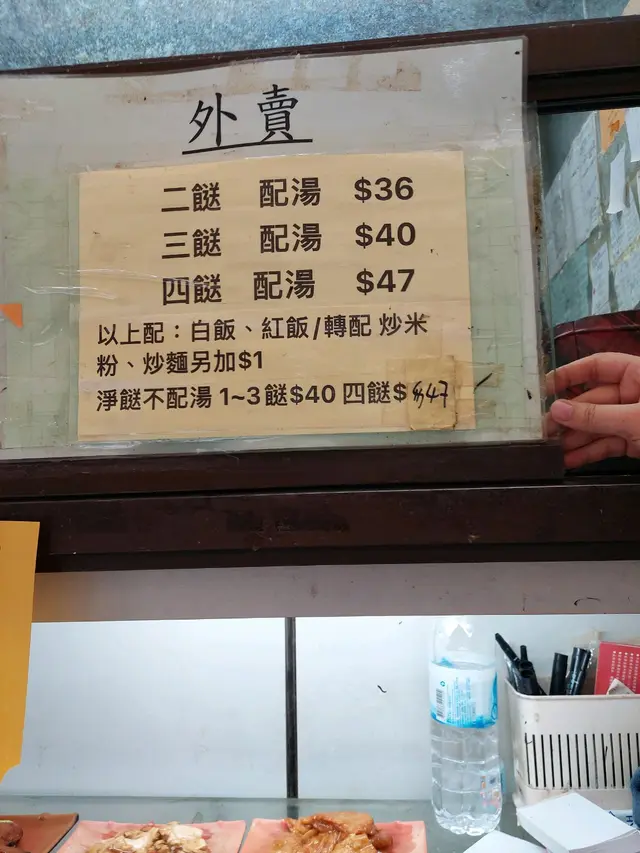 外賣
二餸 配湯 $36
三餸 配湯 $40
四餸 配湯 $47
以上配：白飯、紅飯/轉配 炒米
粉、炒麵另加$1
淨餸不配湯 1~3餸$40 四餸$47